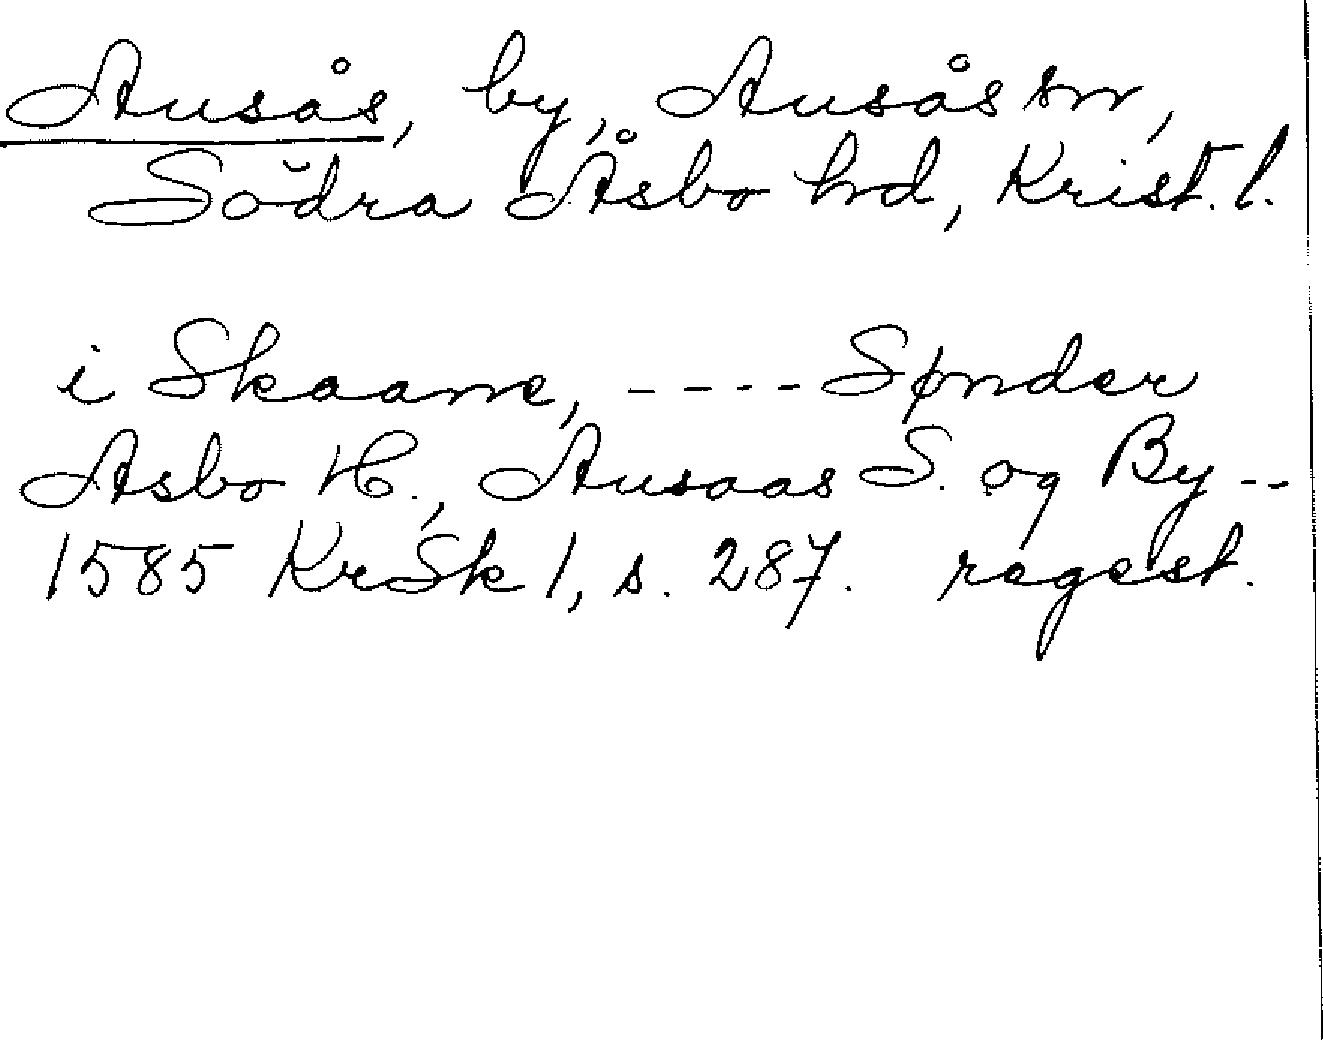 Ausås, by, Ausås sn,
Södra Åsbo hd, Krist. l.
i Skaane, ---- Sønder
Asbo H., Ausaas S. og By --
1585 KrSk 1, s. 287. regest.